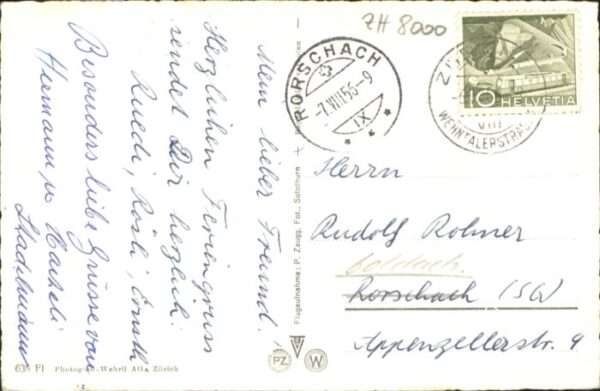 ZH 8000
Mein lieber Freund.
Herzlichen Feriengruss
sendet Dir herzlich
Ruedi, Rösli, Ernstli
Besonders liebe Grüsse von
Hermann u.
Flugaufnahme: P. Zaugg, Fot., Solothurn
RORSCHACH
-7.VIII.55-9
IX
WEHNTALERSTR
VIII
10 HELVETIA
Herrn
Rudolf Rohner
Goldach.
Rorschach (SG)
Appenzellerstr. 9
PZ
W
Photogr.-Wehrli A.G., Zürich